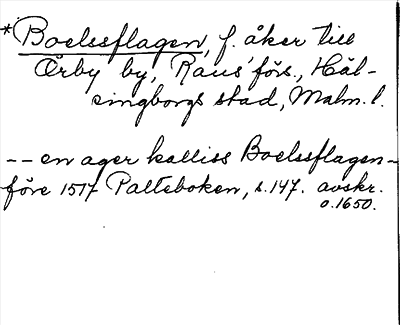 *Boelssflagen, f. åker till
Örby by, Raus' förs., Häl-
singborgs stad, Malm. l.
-- en ager kalliss Boelssflagen -
före 1517 Palteboken, s. 147. avskr.
o. 1650.